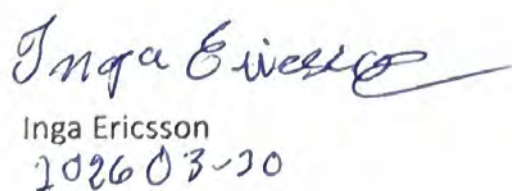 Inga Ericsson
Inga Ericsson
2026 03-20